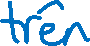 trên